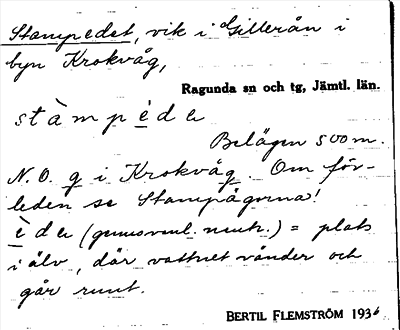 Stampedet, vik i Gillerån i
byn Krokvåg,
Ragunda sn och tg, Jämtl. län.
stàmpède
Belägen 500 m.
N.O. g i Krokvåg. Om för-
leden se Stampågorna!
ède (genusvexl. neutr.) = plats
i älv, där vattnet vänder och
går runt.
BERTIL FLEMSTRÖM 1936